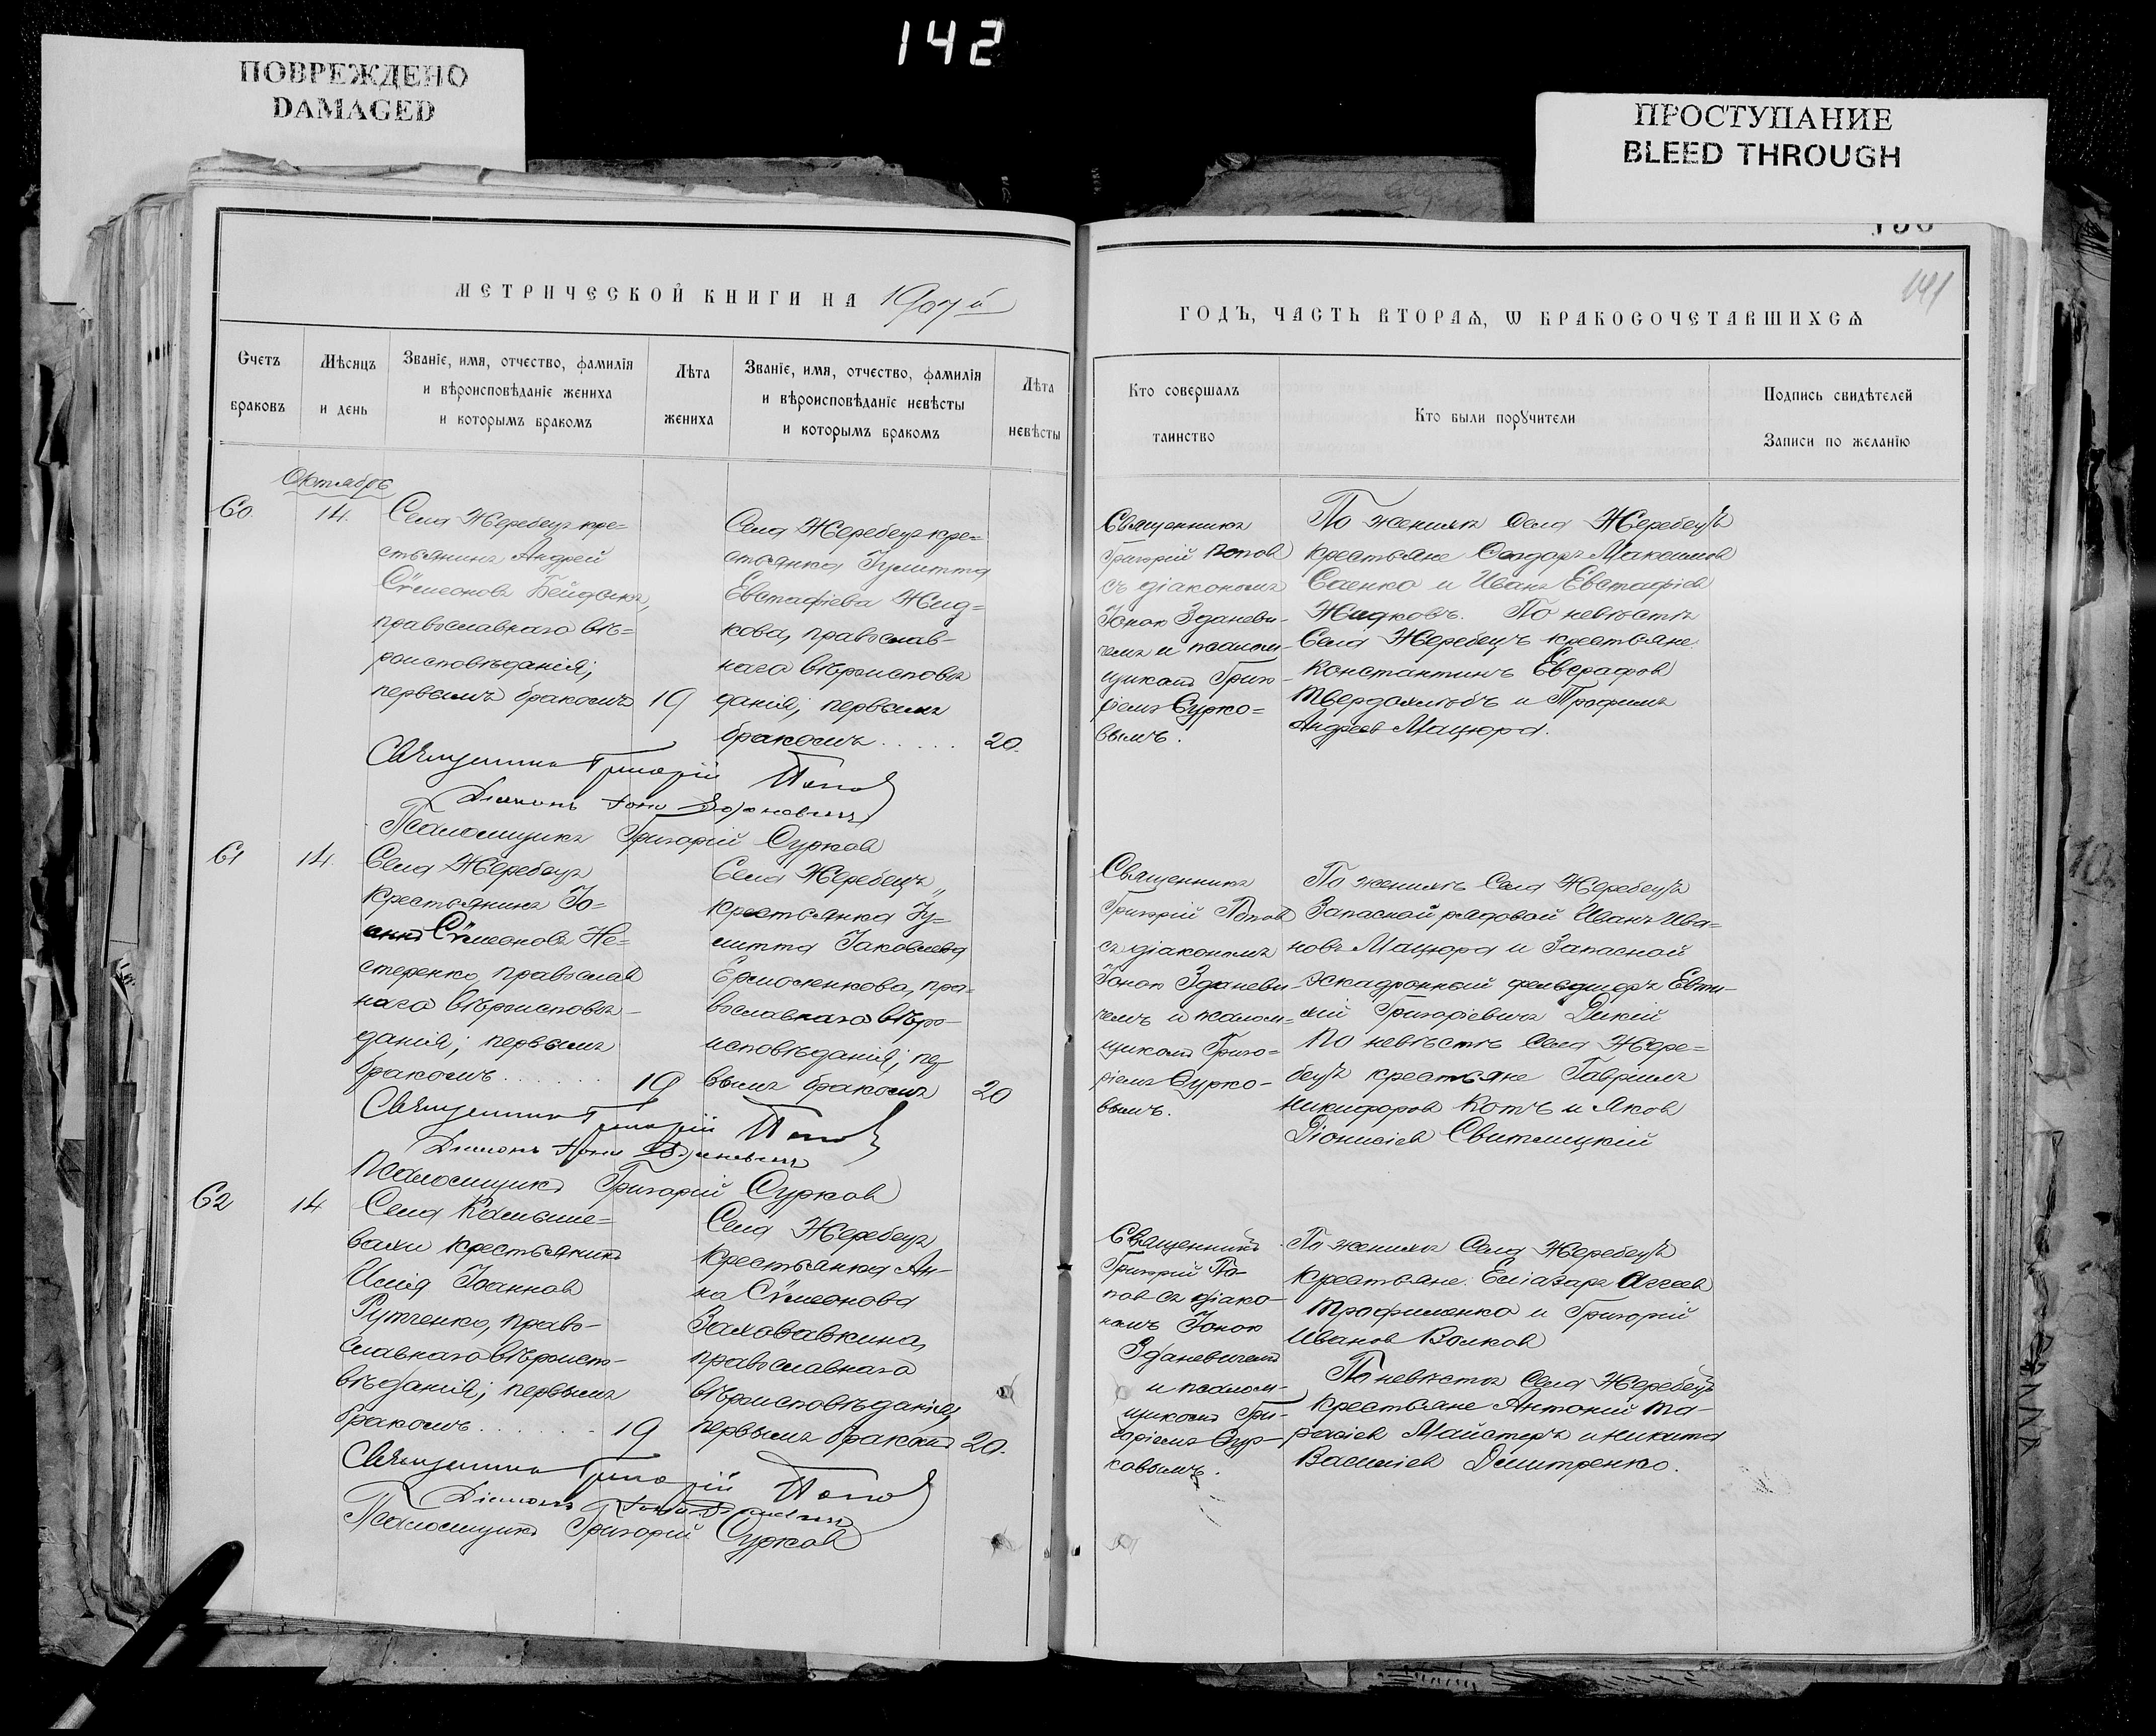 142
ПОВРЕЖДЕНО
DAMAGED
ПРОСТУПАНИЕ
BLEED THROUGH
141
МЕТРИЧЕСКОЙ КНИГИ НА 1907й
ГОДЪ, ЧАСТЬ ВТОРАѦ, Ѡ БРАКОСОЧЕТАВШИХСѦ
Счетъ браковъ
Мѣсяцъ и день
Званіе, имя, отчество, фамилія
и вѣроисповѣданіе жениха
и которымъ бракомъ
Лѣта жениха
Званіе, имя, отчество, фамилія
и вѣроисповѣданіе невѣсты
и которымъ бракомъ
Лѣта невѣсты
Кто совершалъ
таинство
Кто были порꙋчители
Подпись свидѣтелей
Записи по желанію
Октябрь
60
14.
Села Жеребецъ кре=
стьянинъ Андрей
Сѵмеоновъ
православнаго вѣ=
роисповѣданія;
первымъ бракомъ
19
Села Жеребецъ кре=
стьянка Іулитта
Евстафіева Жид=
кова, православ-
наго вѣроисповѣ
данія; первымъ
бракомъ.....
20.
Священникъ
Григорій Попов
съ діакономъ
Іоною Зданеви-
чемъ и псалом-
щикомъ Григо-
ріемъ Сурко=
вымъ.
По женихѣ села Жеребецъ
крестьяне Ѳеодоръ Максимов
Саенко и Иванъ Евстафіев
Жидковъ. По невѣстѣ
Села Жеребецъ крестьяне
Константинъ Евграфов
Твердохлѣбъ и Трофимъ
Андреев Мацюра.
Священникъ Григорій Попов
Діаконъ Іона Зданевичъ
Псаломщикъ Григорій Сурков
61
14.
Села Жеребецъ
крестьянинъ Іо=
аннъ Сѵмеоновъ Не=
стеренко, православ
наго вѣроисповѣ-
данія; первымъ
бракомъ.......
19
Села Жеребецъ
крестьянка Іу=
литта Іаковлева
Ермоленкова, пра-
вославнаго вѣро-
исповѣданія; пе
вымъ бракомъ
20
Священникъ
Григорій Попов
съ діакономъ
Іоною Зданеви-
чемъ и псалом=
щикомъ Григо=
ріемъ Сурко-
вымъ.
По женихѣ Села Жеребецъ
Запасной рядовой Иванъ Ива=
новъ Мацюра и Запасной
эскадронный фельдшеръ Евти-
хій Григоріевичъ Дикій
По невѣстѣ Села Жере=
бецъ крестьяне Гавріилъ
Никифоров Котъ и Яков
Діонисіев Свитлицкій
Священникъ Григорій Попов
Діаконъ Іона Зданевичъ
Псаломщикъ Григорій Сурков
62
14
Села Камыше=
вахи крестьянинъ
Илія Іоаннов
Рутченко, право-
славнаго вѣроиспо-
вѣданія; первымъ
бракомъ.......
19
Села Жеребецъ
крестьянка Ан-
на Сѵмеонова
православнаго
вѣроисповѣданія,
первымъ бракомъ
20.
Священникъ
Григорій По-
пов съ діако-
номъ Іоною
Зданевичемъ
и псалом-
щикомъ Гри-
горіемъ Сур-
ковымъ.
По женихѣ Села Жеребецъ
крестьяне: Еліазаръ Аггеев
Трофименко и Григорій
Иванов Волков
По невѣстѣ Села Жеребецъ
крестьяне Антоній Та-
расіев Майстеръ и Никита
Василіев Дмитренко.
Священникъ Григорій Попов
Діаконъ Іона Зданевичъ
Псаломщикъ Григорій Сурков